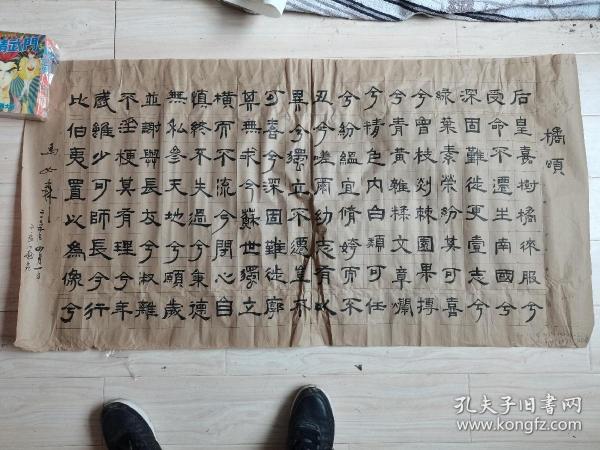 橘頌
后皇嘉樹橘徠服兮
受命不遷生南國兮
深固難徙更壹志兮
綠葉素榮紛其可喜
兮曾枝剡棘圓果摶
兮青黃雜糅文章爛
兮精色内白類可任
兮紛縕宜脩姱而不
丑兮嗟爾幼志有以
異兮獨立不遷豈不
可喜兮深固難徙廓
其無求兮蘇世獨立
橫而不流兮閉心自
慎終不失過兮秉德
無私參天地兮願歲
並謝與長友兮淑離
不淫梗其有理兮年
歲雖少可師長兮行
比伯夷置以為像兮
四月一日
精武門
孔夫子旧书网
www.kongfz.com